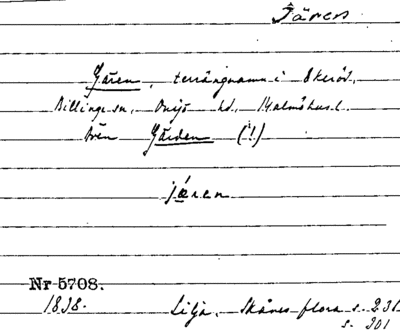 Jären
Jären, terrängnamn i Skeröd,
Billinge sn, Onsjö hd, Malmöhus l.
även Järden (!)
jǽren
Nr 5708.
1838. Lilja, Skånes flora s. 231
s. 301